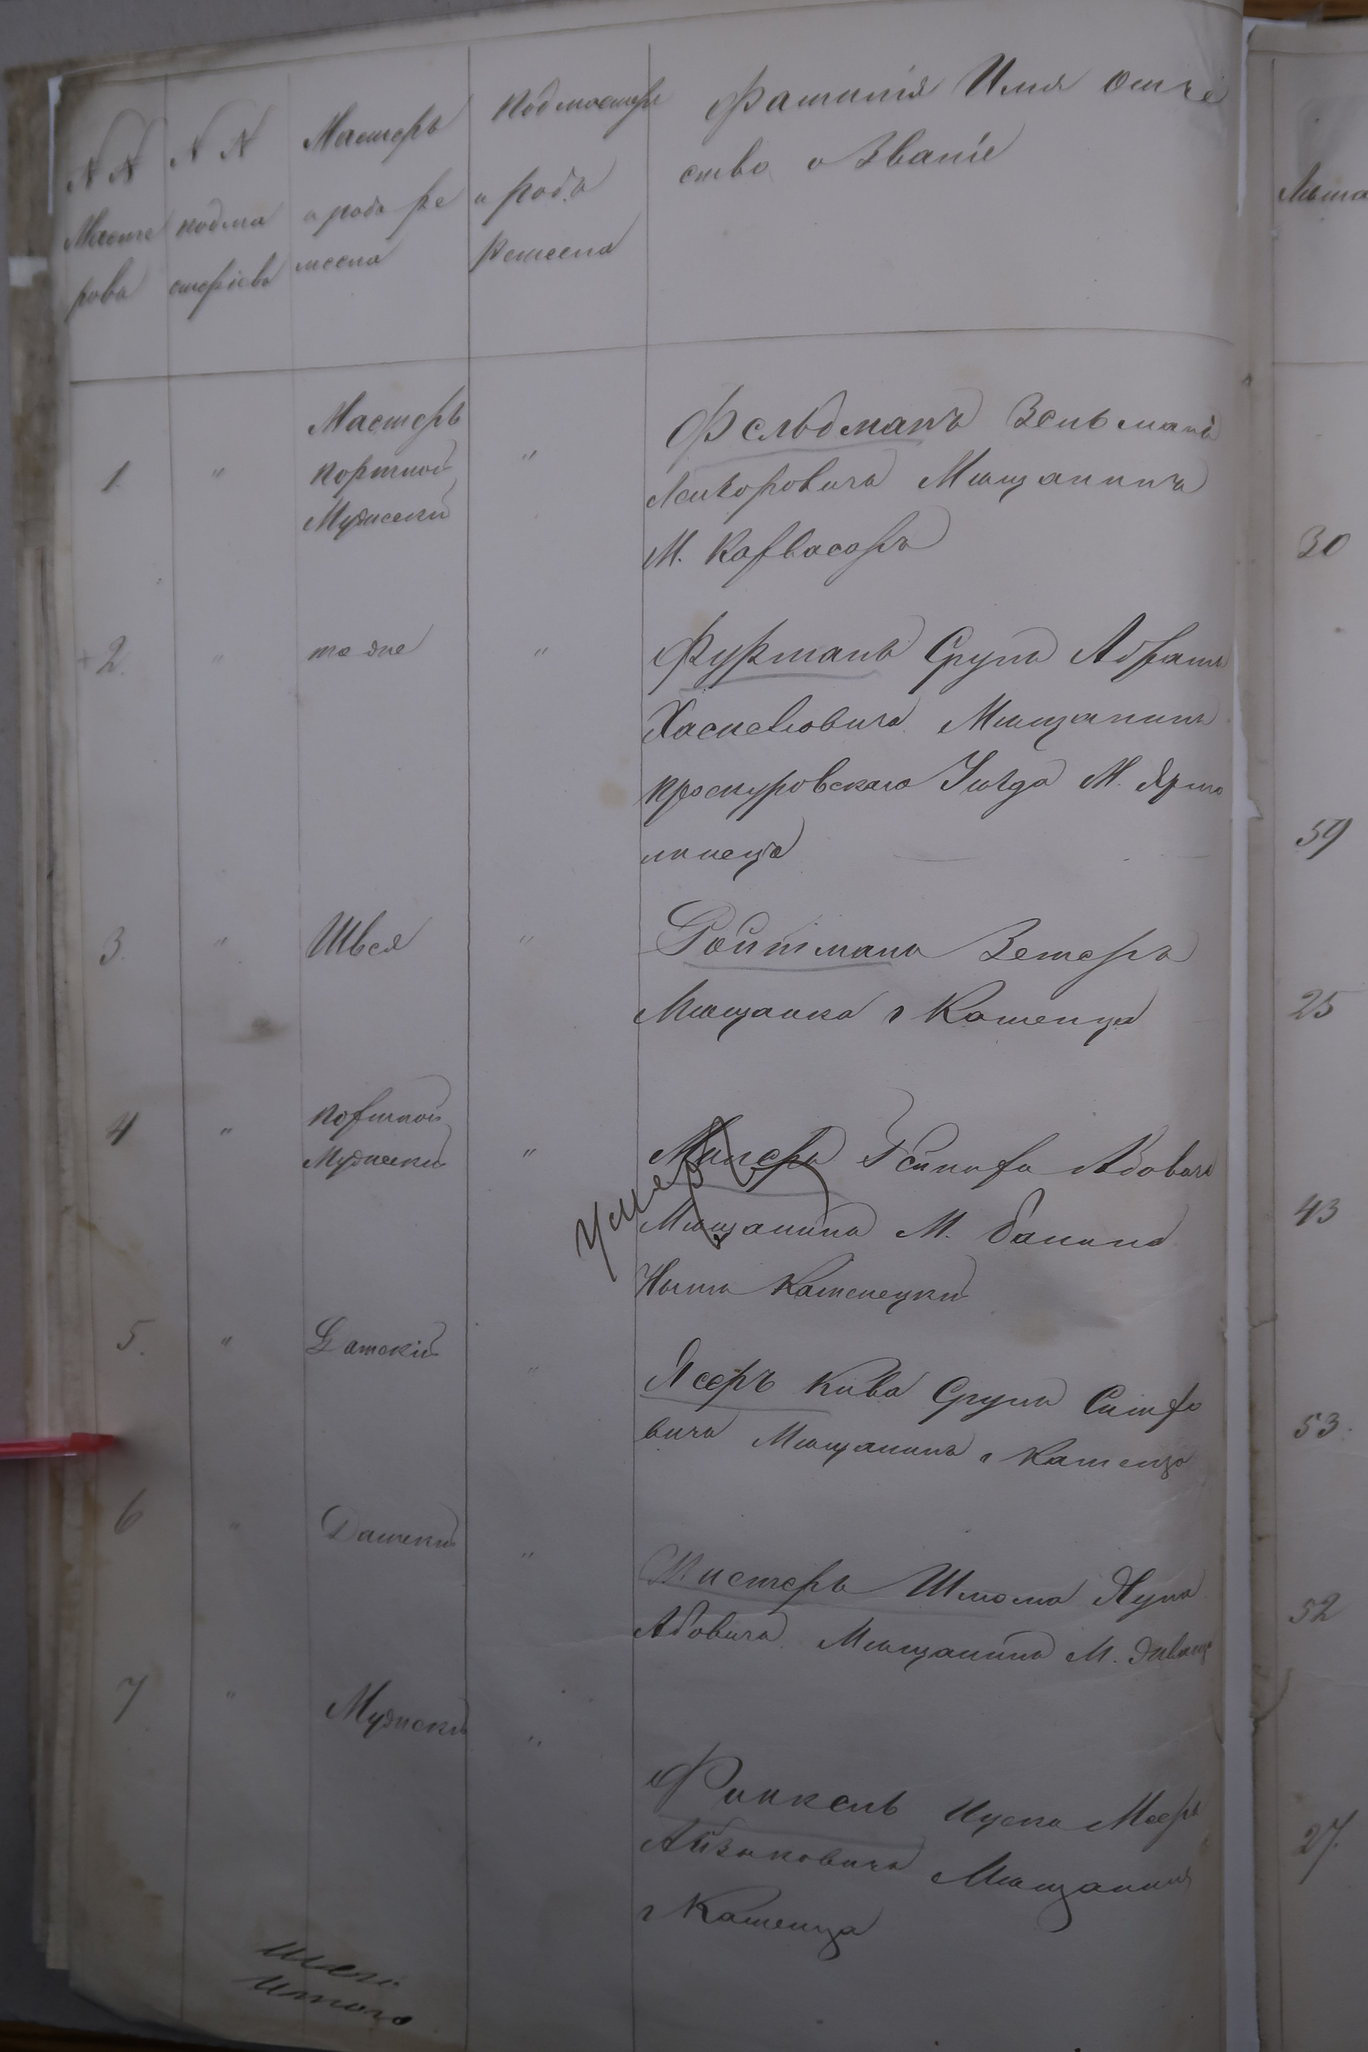 N N Масте рова
N N подма стерьева
Мастеръ и рода ре месла
Подмастерье и рода Ремесла
Фамилія Имя Отче
ство и Званіе
Лѣта
1. " Мастеръ Портной Мужескій "
Фельдманъ Зельманъ
Лейзоровичъ Мѣщанинъ
М. Карвасаръ
30
2. " то же "
Фурманъ Сруль Абрамъ
Хаскелювичъ Мѣщанинъ
Проскуровскаго Уѣзда М. Ярмо
линецъ
59
3. " Швея "
Ройтманъ Земеръ
Мѣщанка г Каменца
25
4 " Портной Мужескій "
Умеръ
Абовичъ
Мѣщанинъ М.
Каменецкій
43
5. " Дамскій "
Ясеръ Кива Сруль
вичъ Мѣщанинъ г Каменца
53.
6 " Дамскій "
Кистеръ Шлома
Абовичъ Мѣщанинъ М.
52
7 " Мужескій "
Финкель Ицко Мееръ
Айзиковичъ Мѣщанинъ
г Каменца
27.
Итого